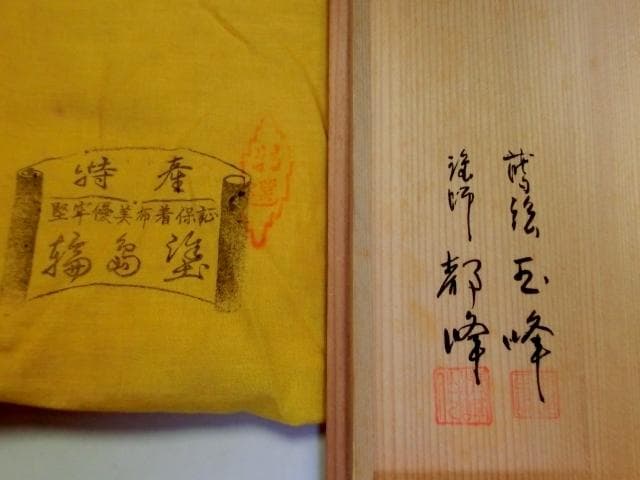 特産
堅牢優美布着保証
輪島塗
蒔絵 玉峰
塗師 都峰